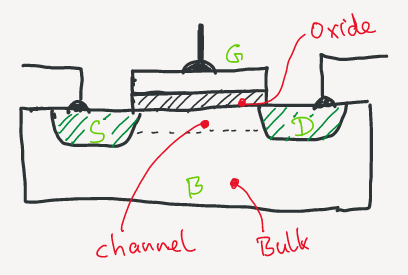 Oxide
G
S
D
B
channel
Bulk